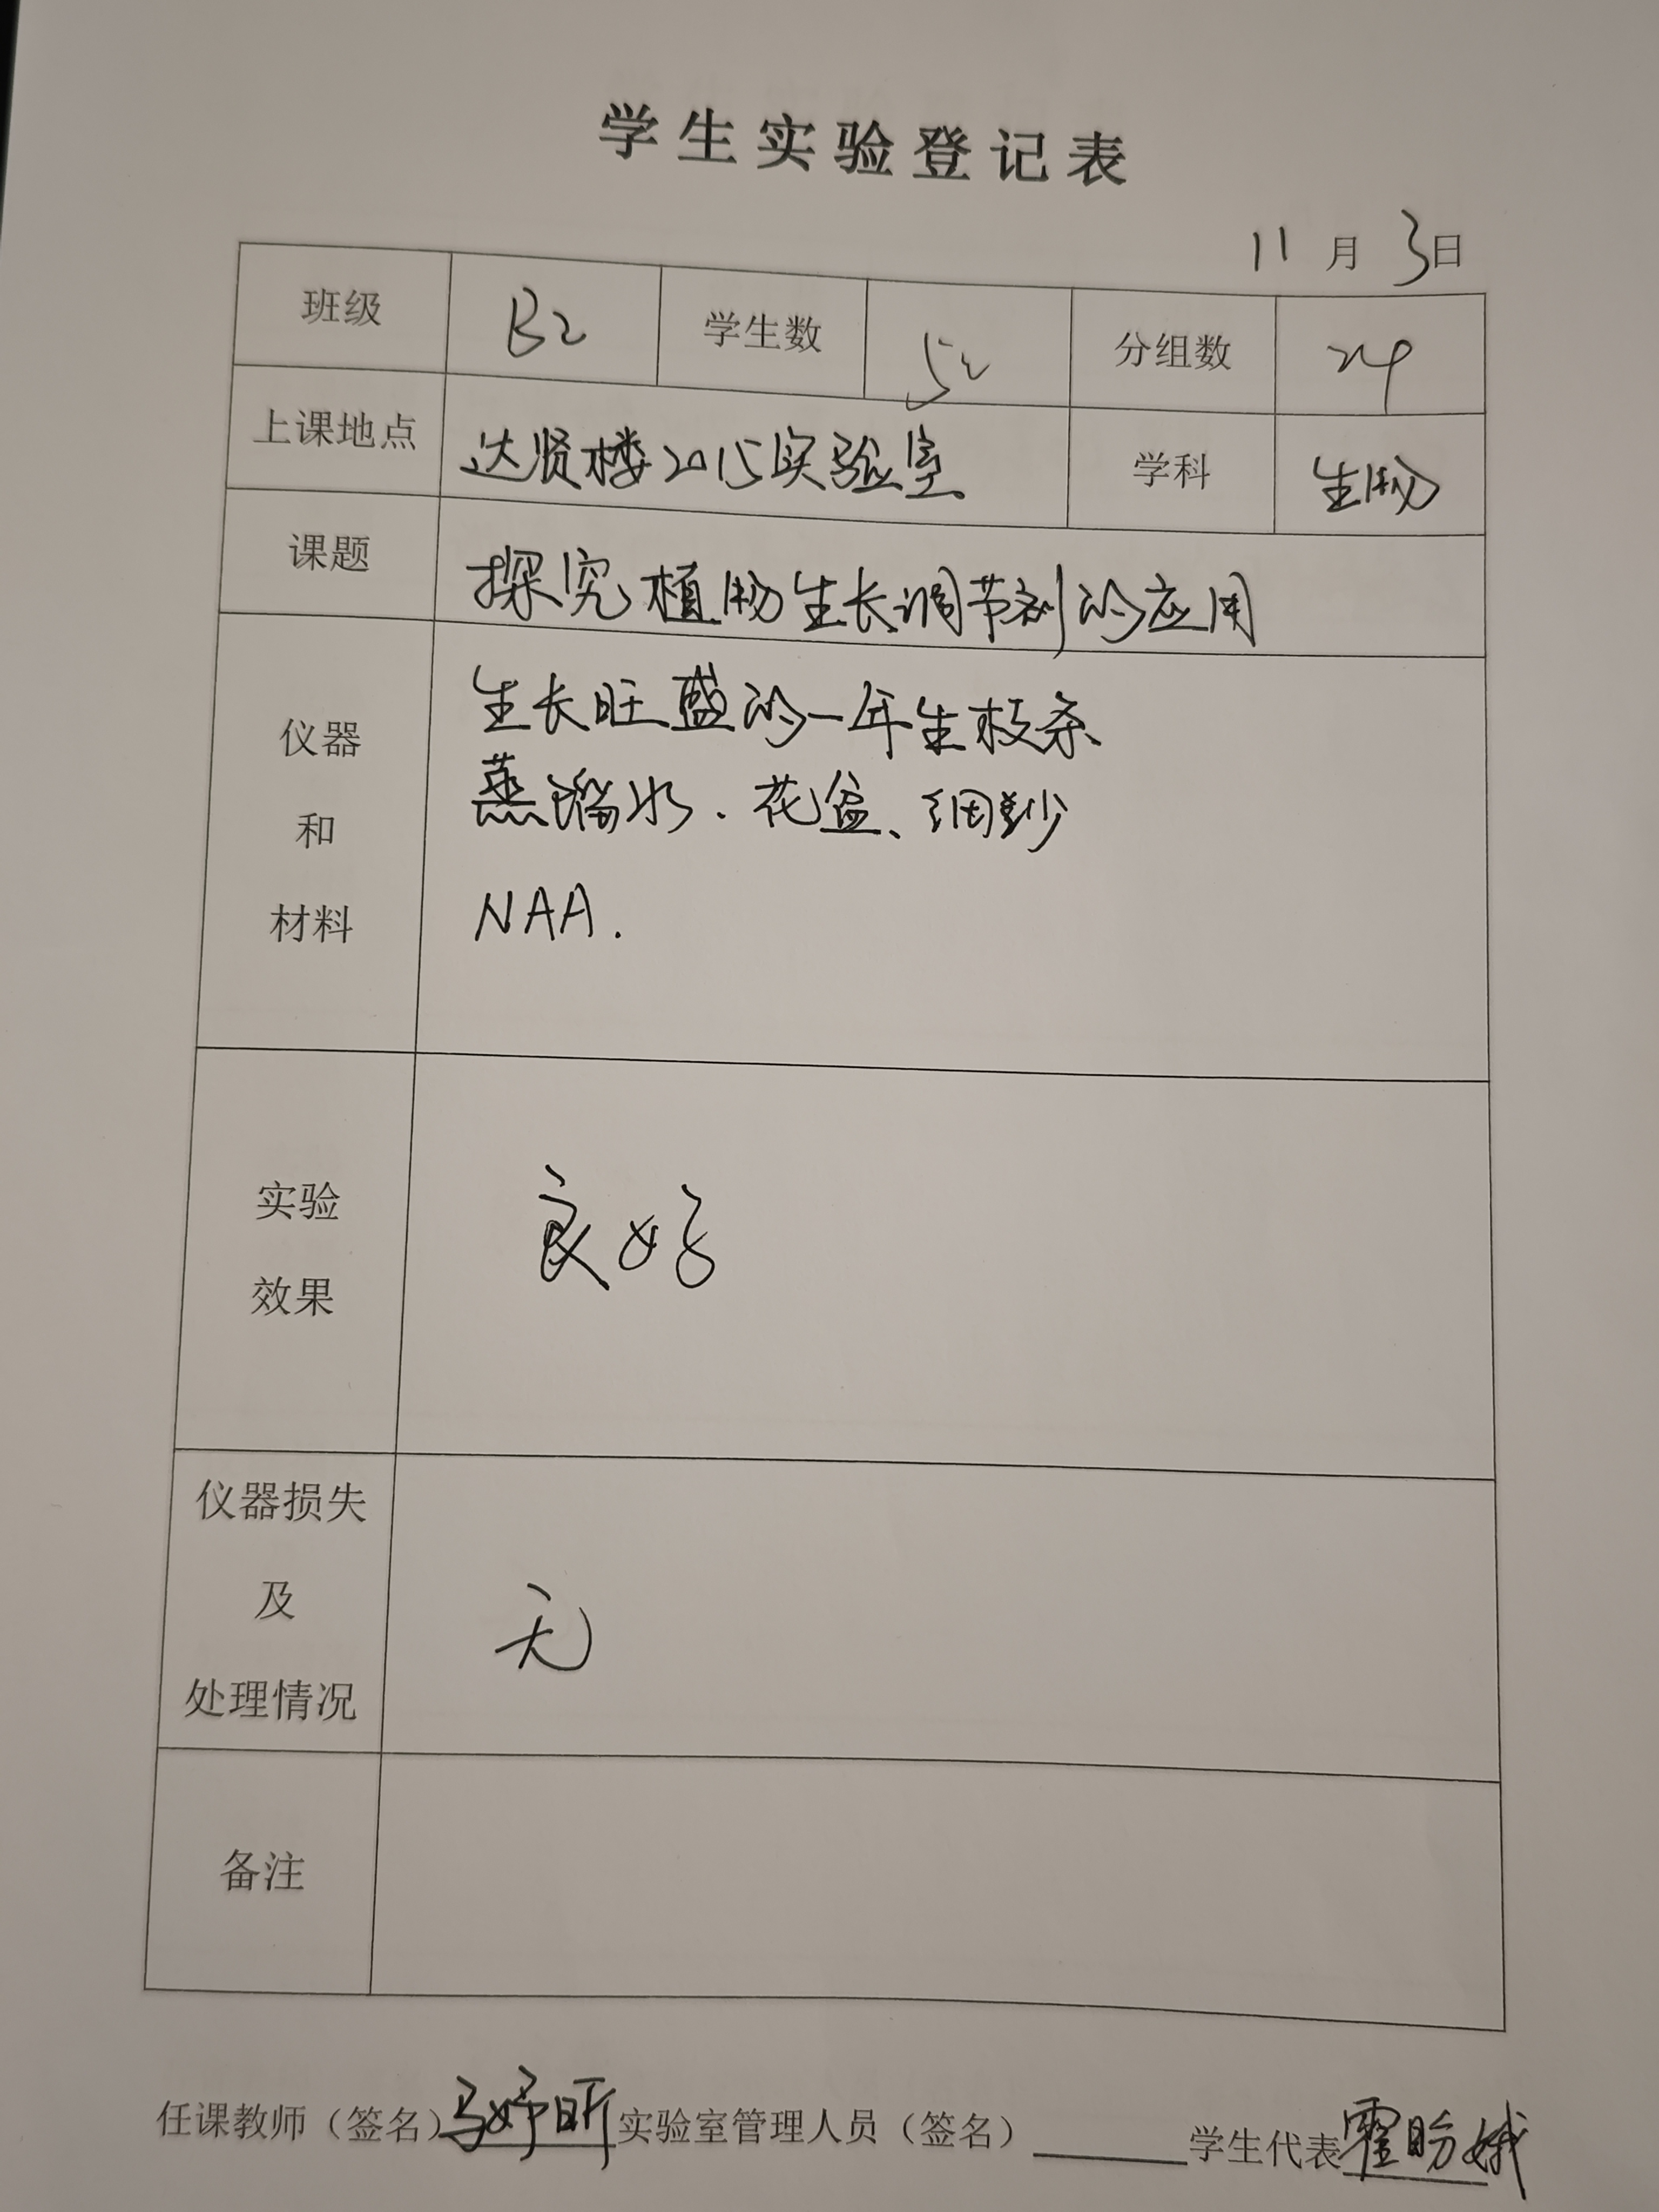 学生实验登记表
11月3日
班级 B2 学生数 52 分组数 24
上课地点 达贤楼2015实验室 学科 生物
课题 探究植物生长调节剂的应用
仪器和材料 生长旺盛的一年生枝条
蒸馏水.花盆、细纱
NAA.
实验效果 良好
仪器损失及处理情况 无
备注
任课教师（签名）马妤昕 实验室管理人员（签名） 学生代表 霍盼娥